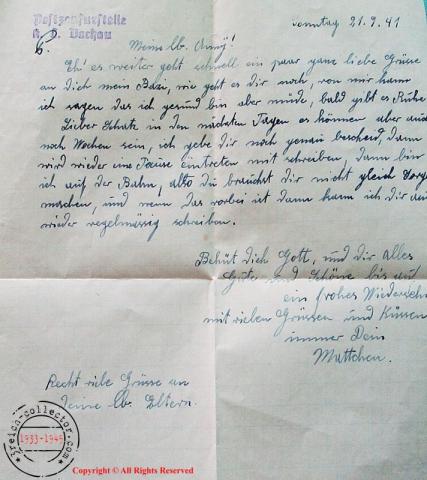 Postzensurstelle
K. L. Dachau
Sonntag 21.9.41
6.
Meine lb.
Eh' es weiter geht schnell ein paar ganz liebe Grüsse
an Dich mein Bazi, wie geht es Dir noch, von mir kann
ich sagen das ich gesund bin aber müde, bald gibt es Ruhe
Lieber Schatz in den nächsten Tagen es können aber auch
noch Wochen sein, ich gebe Dir noch genau bescheid, dann
wird wieder eine Pause eintreten mit schreiben, dann bin
ich auf der Bahn, also Du brauchst Dir nicht gleich
machen, und wenn das vorbei ist dann kann ich Dir
wieder regelmässig schreiben.
Behüt Dich Gott, und Dir alles
Gute und Schöne bis auf
ein frohes
mit vielen Grüssen und Küssen
immer Dein
Recht viele Grüsse an
Deine lb. Eltern.
3reich-collector.com
1933-1945
Copyright © All Rights Reserved